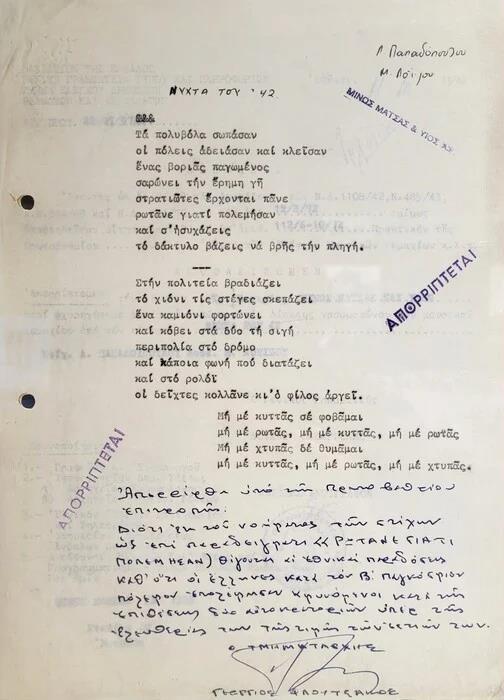 Λ. Παπαδόπουλου
Μ. Λοΐζου
ΝΥΧΤΑ ΤΟΥ '42
ΜΙΝΩΣ ΜΑΤΣΑΣ & ΥΙΟΣ
Τά πολυβόλα σωπάσαν
οι πόλεις άδειάσαν καί κλεῖσαν
ἕνας βοριᾶς παγωμένος
σαρώνει τήν ἔρημη γῆ
στρατιῶτες ἔρχονται πᾶνε
ρωτᾶνε γιατί πολεμῆσαν
καί σ'ἡσυχάζεις
τό δάκτυλο βάζεις νά βρῆς τήν πληγή.
Στήν πολιτεία βραδιάζει
τό χιόνι τίς στέγες σκεπάζει
ἕνα καμιόνι φορτώνει
καί κόβει στά δύο τή σιγή
περιπολία στό δρόμο
καί κάποια φωνή πού διατάζει
καί στό ρολόϊ
οἱ δεῖχτες κολλᾶνε κι'ὁ φίλος ἀργεῖ.
ΑΠΟΡΡΙΠΤΕΤΑΙ
Μή μέ κυττᾶς σέ φοβᾶμαι
μή μέ ρωτᾶς, μή μέ κυττᾶς, μή μέ ρωτᾶς
Μή μέ χτυπᾶς δέ θυμᾶμαι
μή μέ κυττᾶς, μή μέ ρωτᾶς, μή μέ χτυπᾶς.
ΑΠΟΡΡΙΠΤΕΤΑΙ
Ἀπερρίφθη ὑπό τῆς Πρωτοβαθμίου
ἐπιτροπῆς.
Διότι ἐκ τοῦ νοήματος τῶν στίχων
ὡς ἐπί παραδείγματι <<ΡΩΤΑΝΕ ΓΙΑΤΙ
ΠΟΛΕΜΗΣΑΝ) θίγονται αἱ ἐθνικαί παραδόσεις
καθ' ὅτι οἱ ἕλληνες κατά τόν Β. παγκόσμιον
πόλεμον ἐπολέμησαν ἀμυνόμενοι κατά τῆς
ἐπιθέσεως δύο αὐτοκρατοριῶν ὑπέρ τῆς
ἐλευθερίας των τῆς τιμῆς των
Ο ΤΜΗΜΑΤΑΡΧΗΣ
ΓΕΩΡΓΙΟΣ